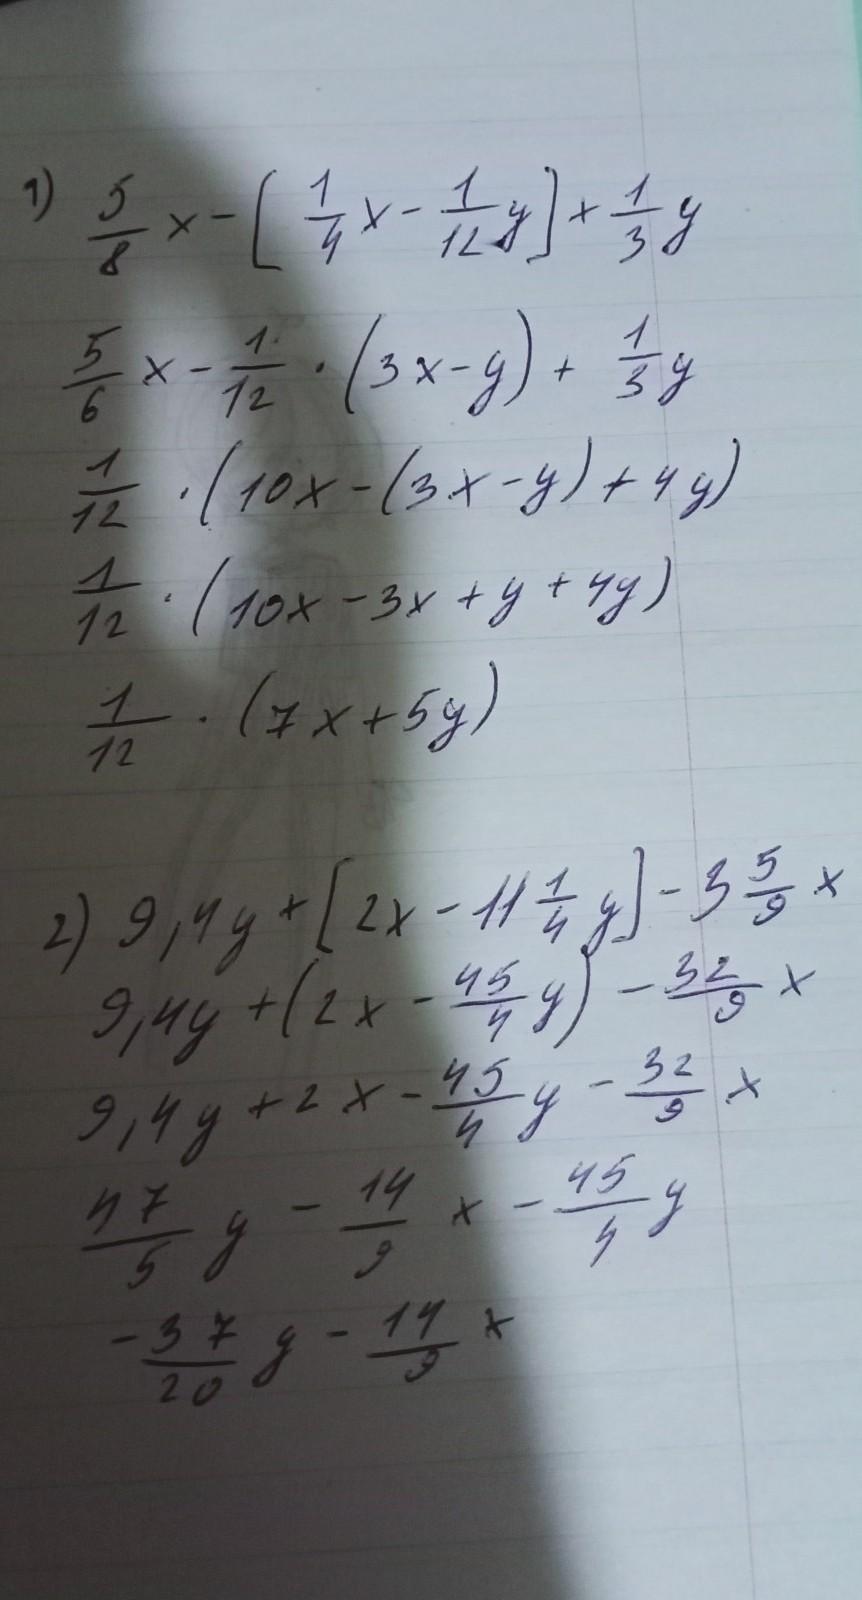 1) 5/8 x - [1/4 x - 1/12 y] + 1/3 y
5/6 x - 1/12 · (3x - y) + 1/3 y
1/12 · (10x - (3x - y) + 4y)
1/12 · (10x - 3x + y + 4y)
1/12 · (7x + 5y)
2) 9,4y + [2x - 11 1/4 y] - 3 5/9 x
9,4y + (2x - 45/4 y) - 32/9 x
9,4y + 2x - 45/4 y - 32/9 x
47/5 y - 14/9 x - 45/4 y
- 37/20 y - 14/9 x